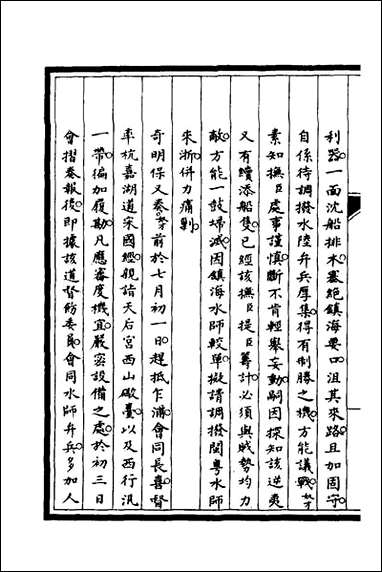 利器一面沈船排木塞絶鎮海要口沮其來路且加固守
自係待調撥水陸弁兵厚集得有制勝之機方能議戰等
素知撫臣處事謹慎斷不肯輕舉妄動嗣因探知該逆夷
又有續添船隻已經該撫臣提臣籌計必須與賊勢均力
敵方能一鼓埽滅因鎮海水師較單擬請調撥閩粤水師
來浙併力痛剿
奇明保又奏等前於七月初一日趕抵乍浦會同長喜督
率杭嘉湖道宋國經親詣天后宮西山礮臺以及西行汛
一帶徧加履勘凡應審度機宜嚴密設備之處於初三日
會摺奏報後即據該道督飭委員會同水師弁兵多加人